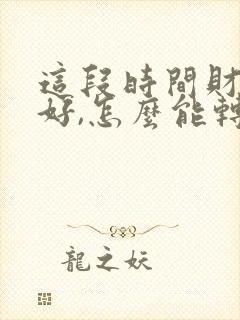 這段時間財
好,怎麼能轉
龍之妖